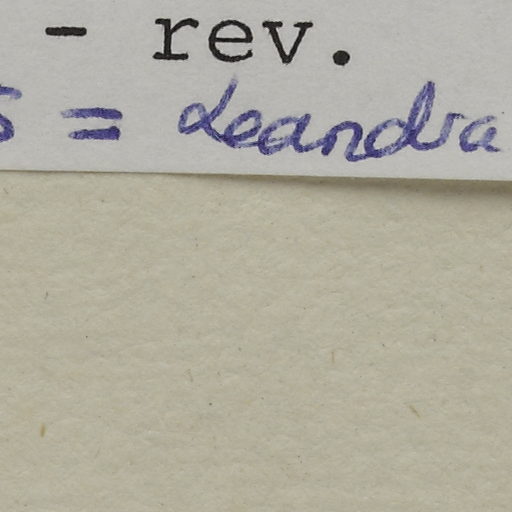 - rev.
= Leandra